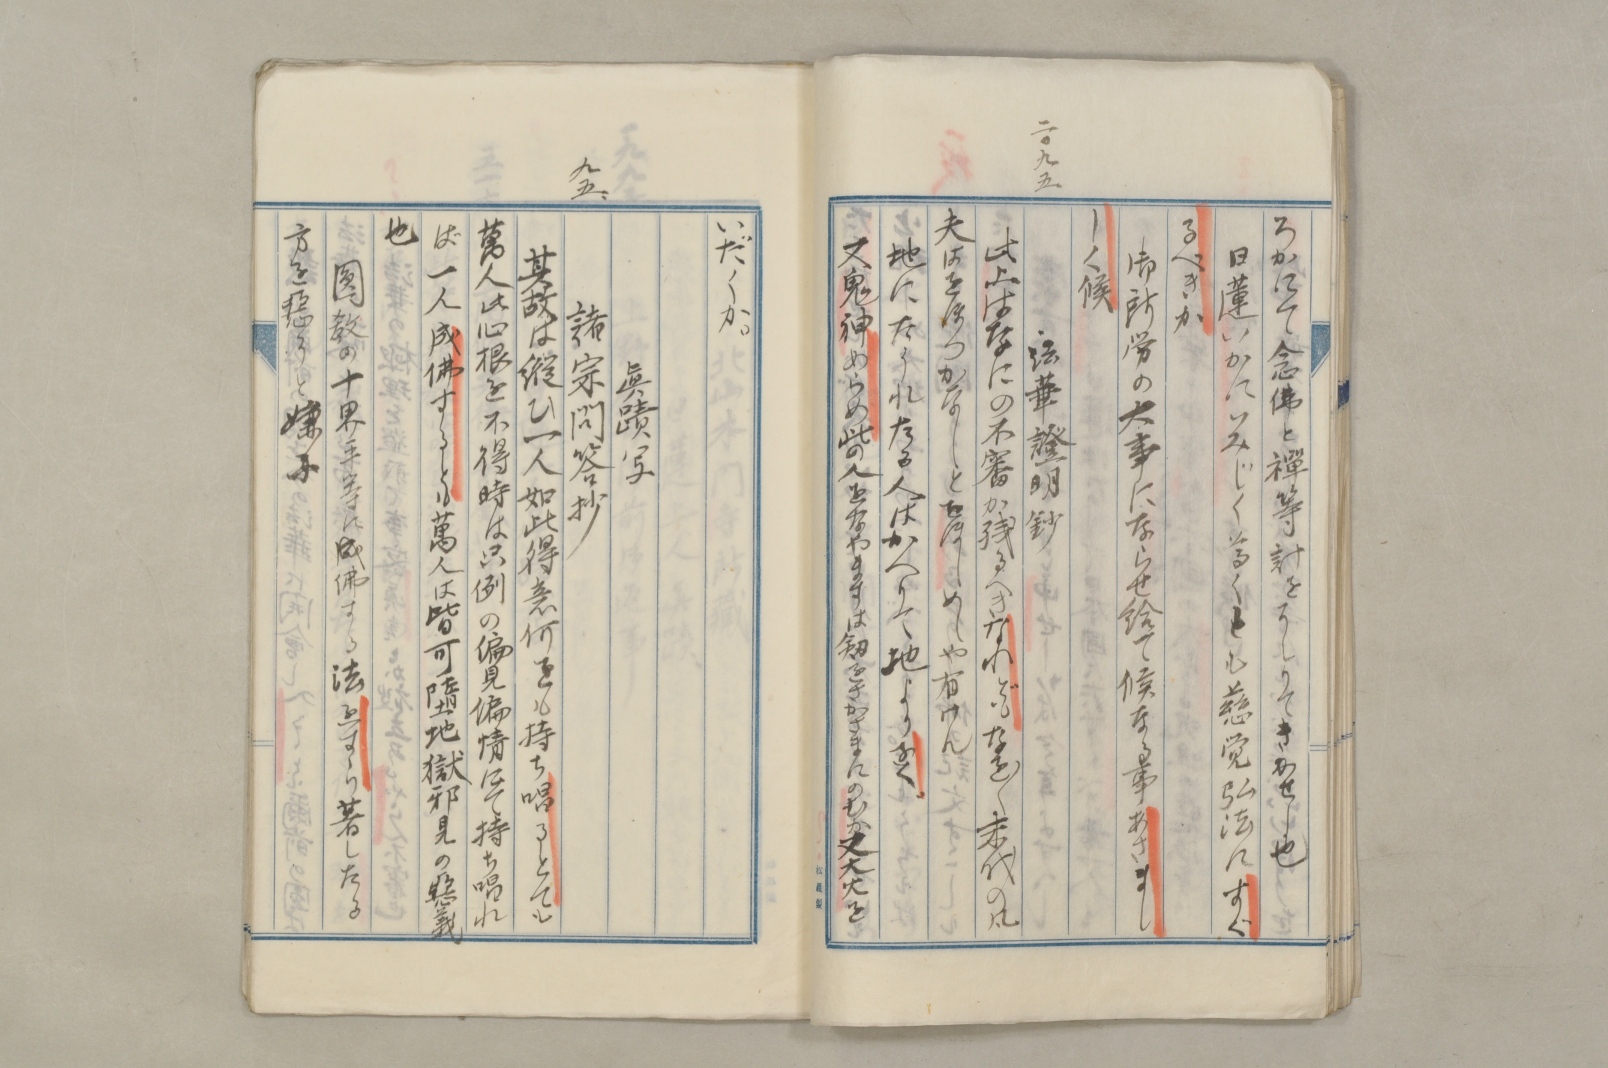 ろかにて念佛と禪等計をうしりてきかせし也
日蓮いかにいみじく尊くとも慈覚弘法にすぐ
るべきか
御所労の大事にならせ給て候なる事あさまし
しく候
二百九五、
法華證明鈔
此上はなにの不審か残るへきなれどもなをし末代の凡
夫はをほつかなしとをほしめしや有けん
地にたうれたる人はかへりて地よりをく
又鬼神めらめ此の人をなやますは剱をさかさまにのむか又大火を
いだくか。
真蹟写
九五、
諸宗問答抄
其故は縦ひ一人如此得意何をも持ち唱るとても
萬人此心根を不得時は只例の偏見偏情にて持ち唱れ
ば一人成佛するとも萬人は皆可墮地獄邪見の惡義
也
圓教の十界平等に成佛する法をすら着したる
方を惡ろしと嫌ふ